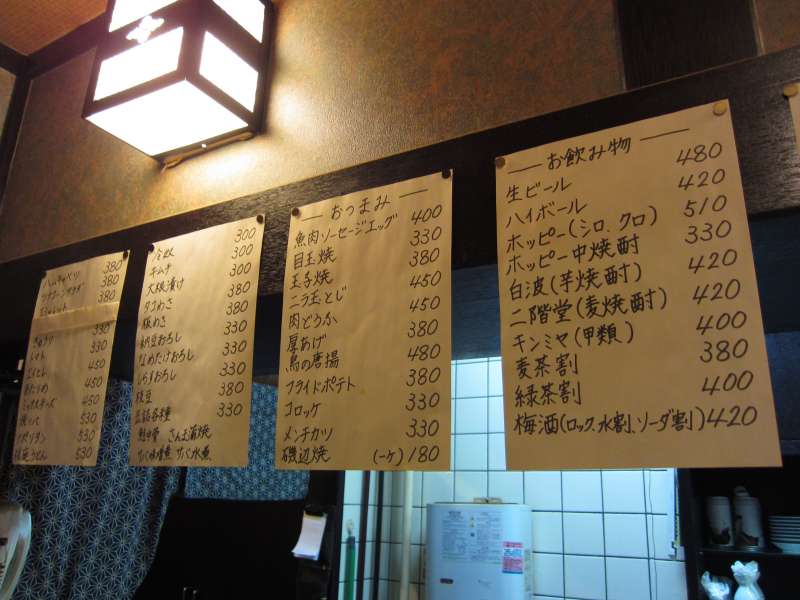 ハムキャベツ 380
ツナコーンサラダ 380
380
330
トマト 330
エイヒレ 450
450
ミックスチーズ 450
530
ナポリタン 530
うどん 530
冷奴 300
キムチ 300
大根漬け 300
タコわさ 380
豚めさ 380
納豆おろし 330
なめたけおろし 330
しらすおろし 330
枝豆 380
缶詰各種 330
鯨田骨 さんま蒲焼
サバ味噌煮 サバ水煮
おつまみ
魚肉ソーセージエッグ 400
目玉焼 330
玉子焼 380
ニラ玉とじ 450
肉どうふ 450
厚あげ 380
鳥の唐揚 480
フライドポテト 380
コロッケ 330
メンチカツ 330
磯辺焼 (一ケ)180
お飲み物
生ビール 480
ハイボール 420
ホッピー(シロ、クロ) 510
ホッピー中焼酎 330
白波(芋焼酎) 420
二階堂(麦焼酎) 420
キンミヤ(甲類) 400
麦茶割 380
緑茶割 400
梅酒(ロック、水割、ソーダ割) 420